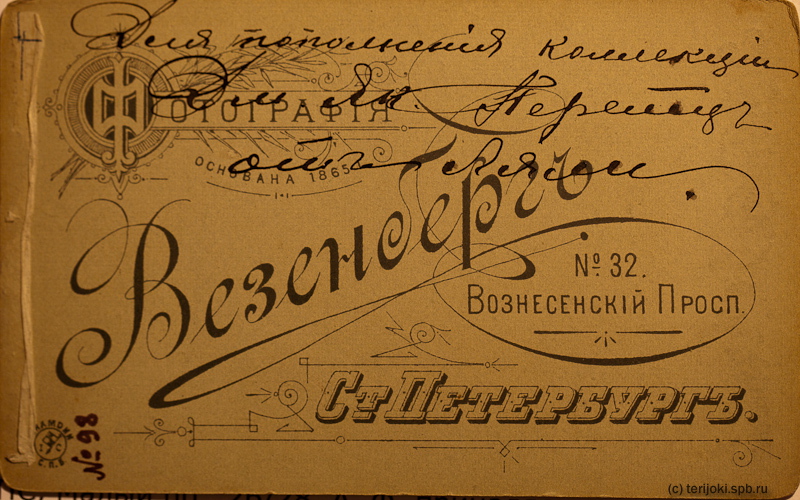 Для пополненія коллекціи
Эм. Як. Перетцъ
отъ Ляли
Фотографія
основана 1865
Везенбергъ
№ 32.
Вознесенскій Просп.
Ст Петербургъ.
№ 98
(c) terijoki.spb.ru